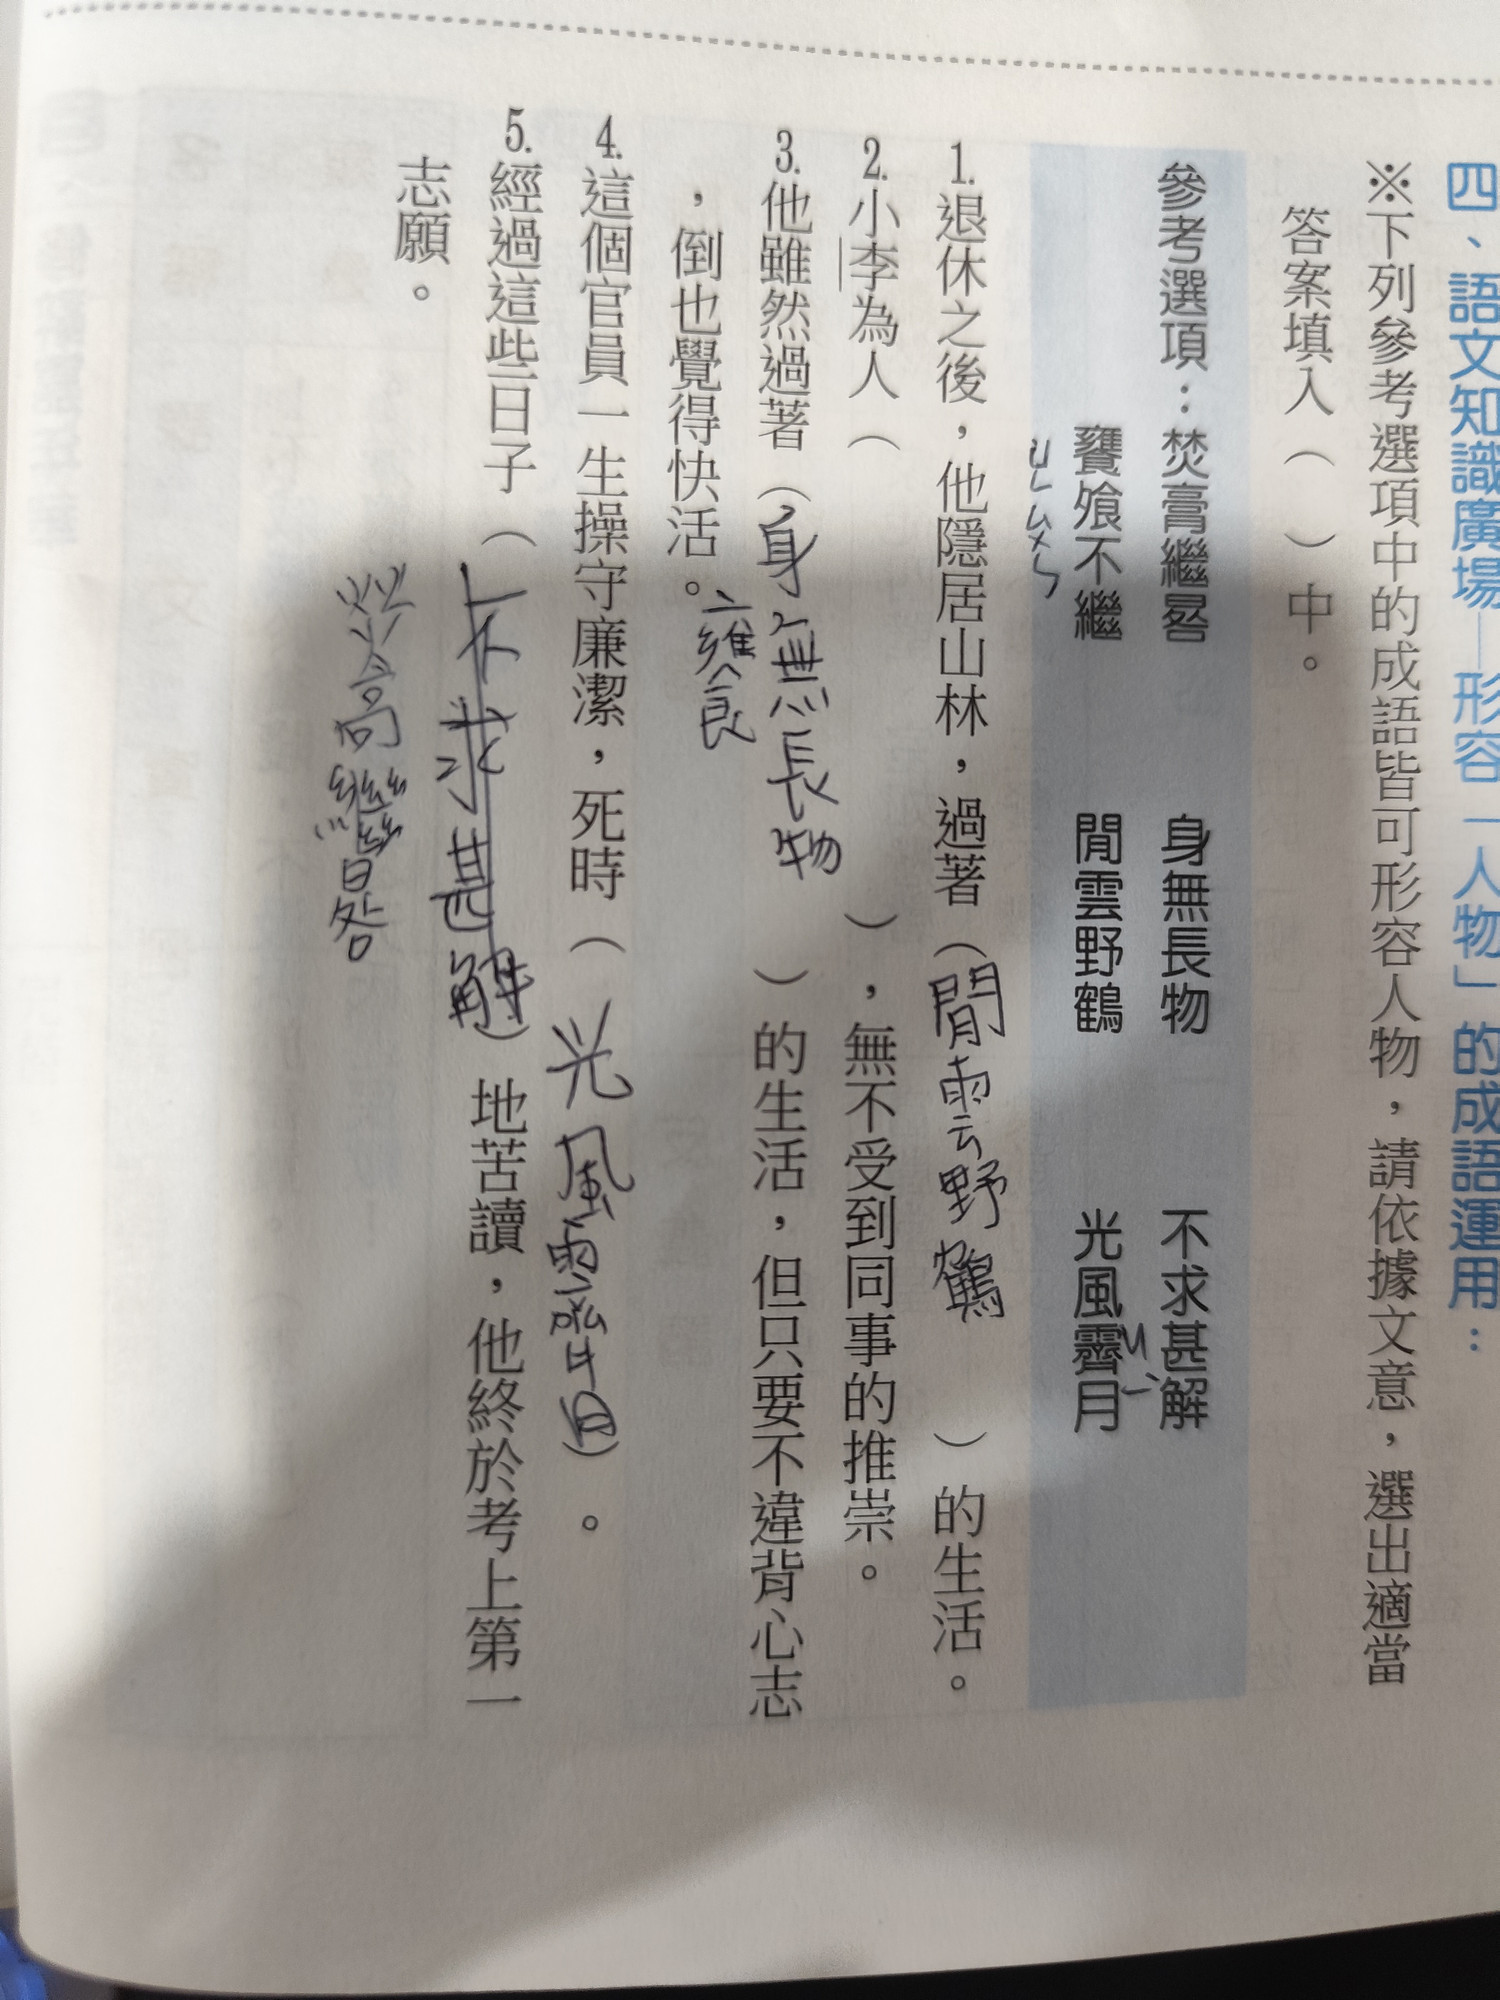 四、語文知識廣場─形容「人物」的成語運用：
※下列參考選項中的成語皆可形容人物，請依據文意，選出適當
答案填入（ ）中。
參考選項：焚膏繼晷 身無長物 不求甚解
饔飧不繼 閒雲野鶴 光風霽月
ㄩㄥ ㄙㄨㄣ
ㄐㄧˋ
1.退休之後，他隱居山林，過著（閒雲野鶴）的生活。
2.小李為人（ ），無不受到同事的推崇。
3.他雖然過著（身無長物）的生活，但只要不違背心志
，倒也覺得快活。
4.這個官員一生操守廉潔，死時（光風霽月）。
5.經過這些日子（不求甚解）地苦讀，他終於考上第一
志願。
焚膏繼晷